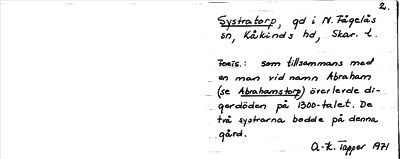 2.
Systratorp, gd i N. Fågelås
sn, Kåkinds hd, Skar. l.
som tillsammans med
en man vid namn Abraham
(se Abrahamstorp) överlevde di-
gerdöden på 1300-talet. De
två systrarna bodde på denna
gård.
A.-K. Tapper 1971